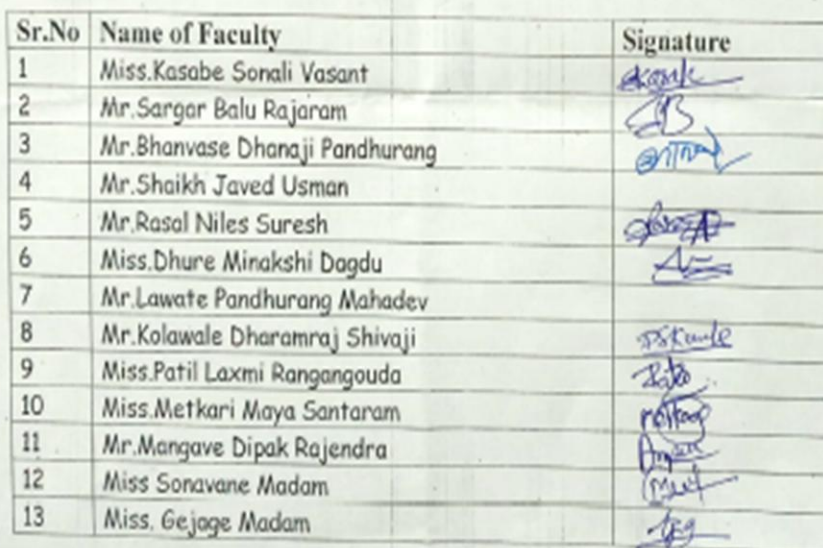 Sr.No Name of Faculty Signature
1 Miss.Kasabe Sonali Vasant
2 Mr.Sargar Balu Rajaram
3 Mr.Bhanvase Dhanaji Pandhurang
4 Mr.Shaikh Javed Usman
5 Mr.Rasal Niles Suresh
6 Miss.Dhure Minakshi Dagdu
7 Mr.Lawate Pandhurang Mahadev
8 Mr.Kolawale Dharamraj Shivaji
9 Miss.Patil Laxmi Rangangouda
10 Miss.Metkari Maya Santaram
11 Mr.Mangave Dipak Rajendra
12 Miss Sonavane Madam
13 Miss. Gejage Madam